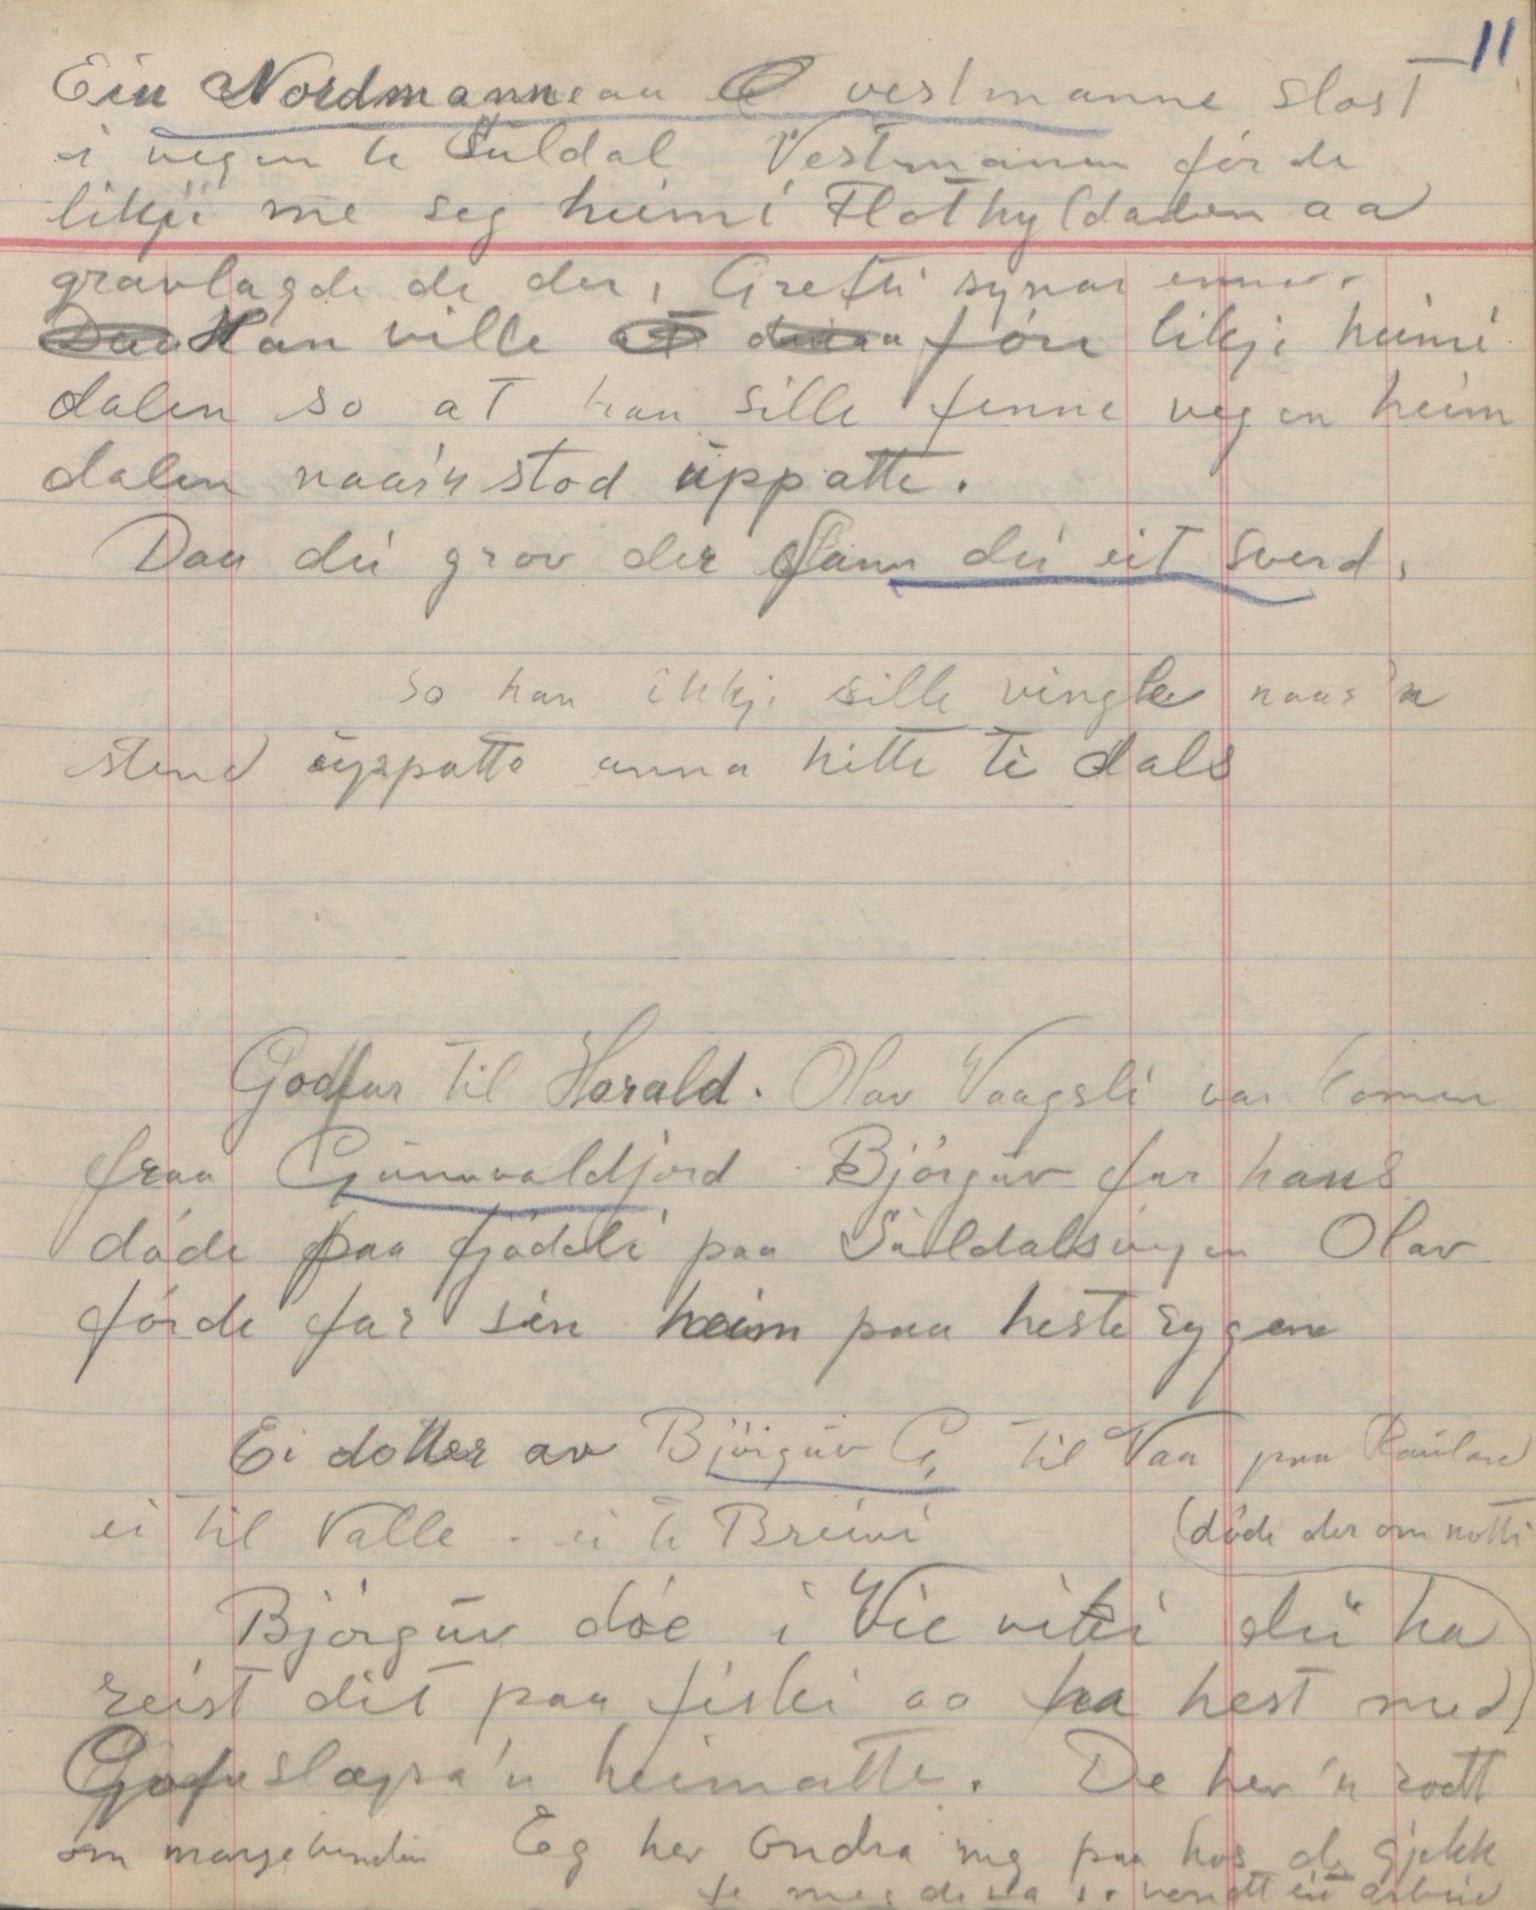 11
Ein Nordmann aa vestmanne slost
i vegen te Suldal Vestmannen förde
likji me seg heim i Flothyldalen aa
gravlagde de der, Grefti synar
Han ville föra likji heim i
dalen so at han sille finne vegen heim
dalen naar'n stod uppatte.
Daa dei grov der fann dei eit sverd,
so han ikkje sille vingle naar'n
stend uppatte anna hitte te dals
Godfar til Harald. Olav Vaagsli var komen
fraa Gunnvaldjord Björguv far hans
döde paa fjödeli paa Suldalsvegen Olav
förde far sin heim paa hesterygen
Ei dotter av Björguv G, til Vaa paa Rauland
ei til Valle - ei te Breivi
(döde der om notti
Björguv döe i Vie viki dei ha
reist dit paa fiski aa ha hest med)
Godfa slæpa'n heimatte. De her'n rodt
om mange hundin Eg her ondra meg paa hos de gjekk
te me de va so vondt eit arbeid